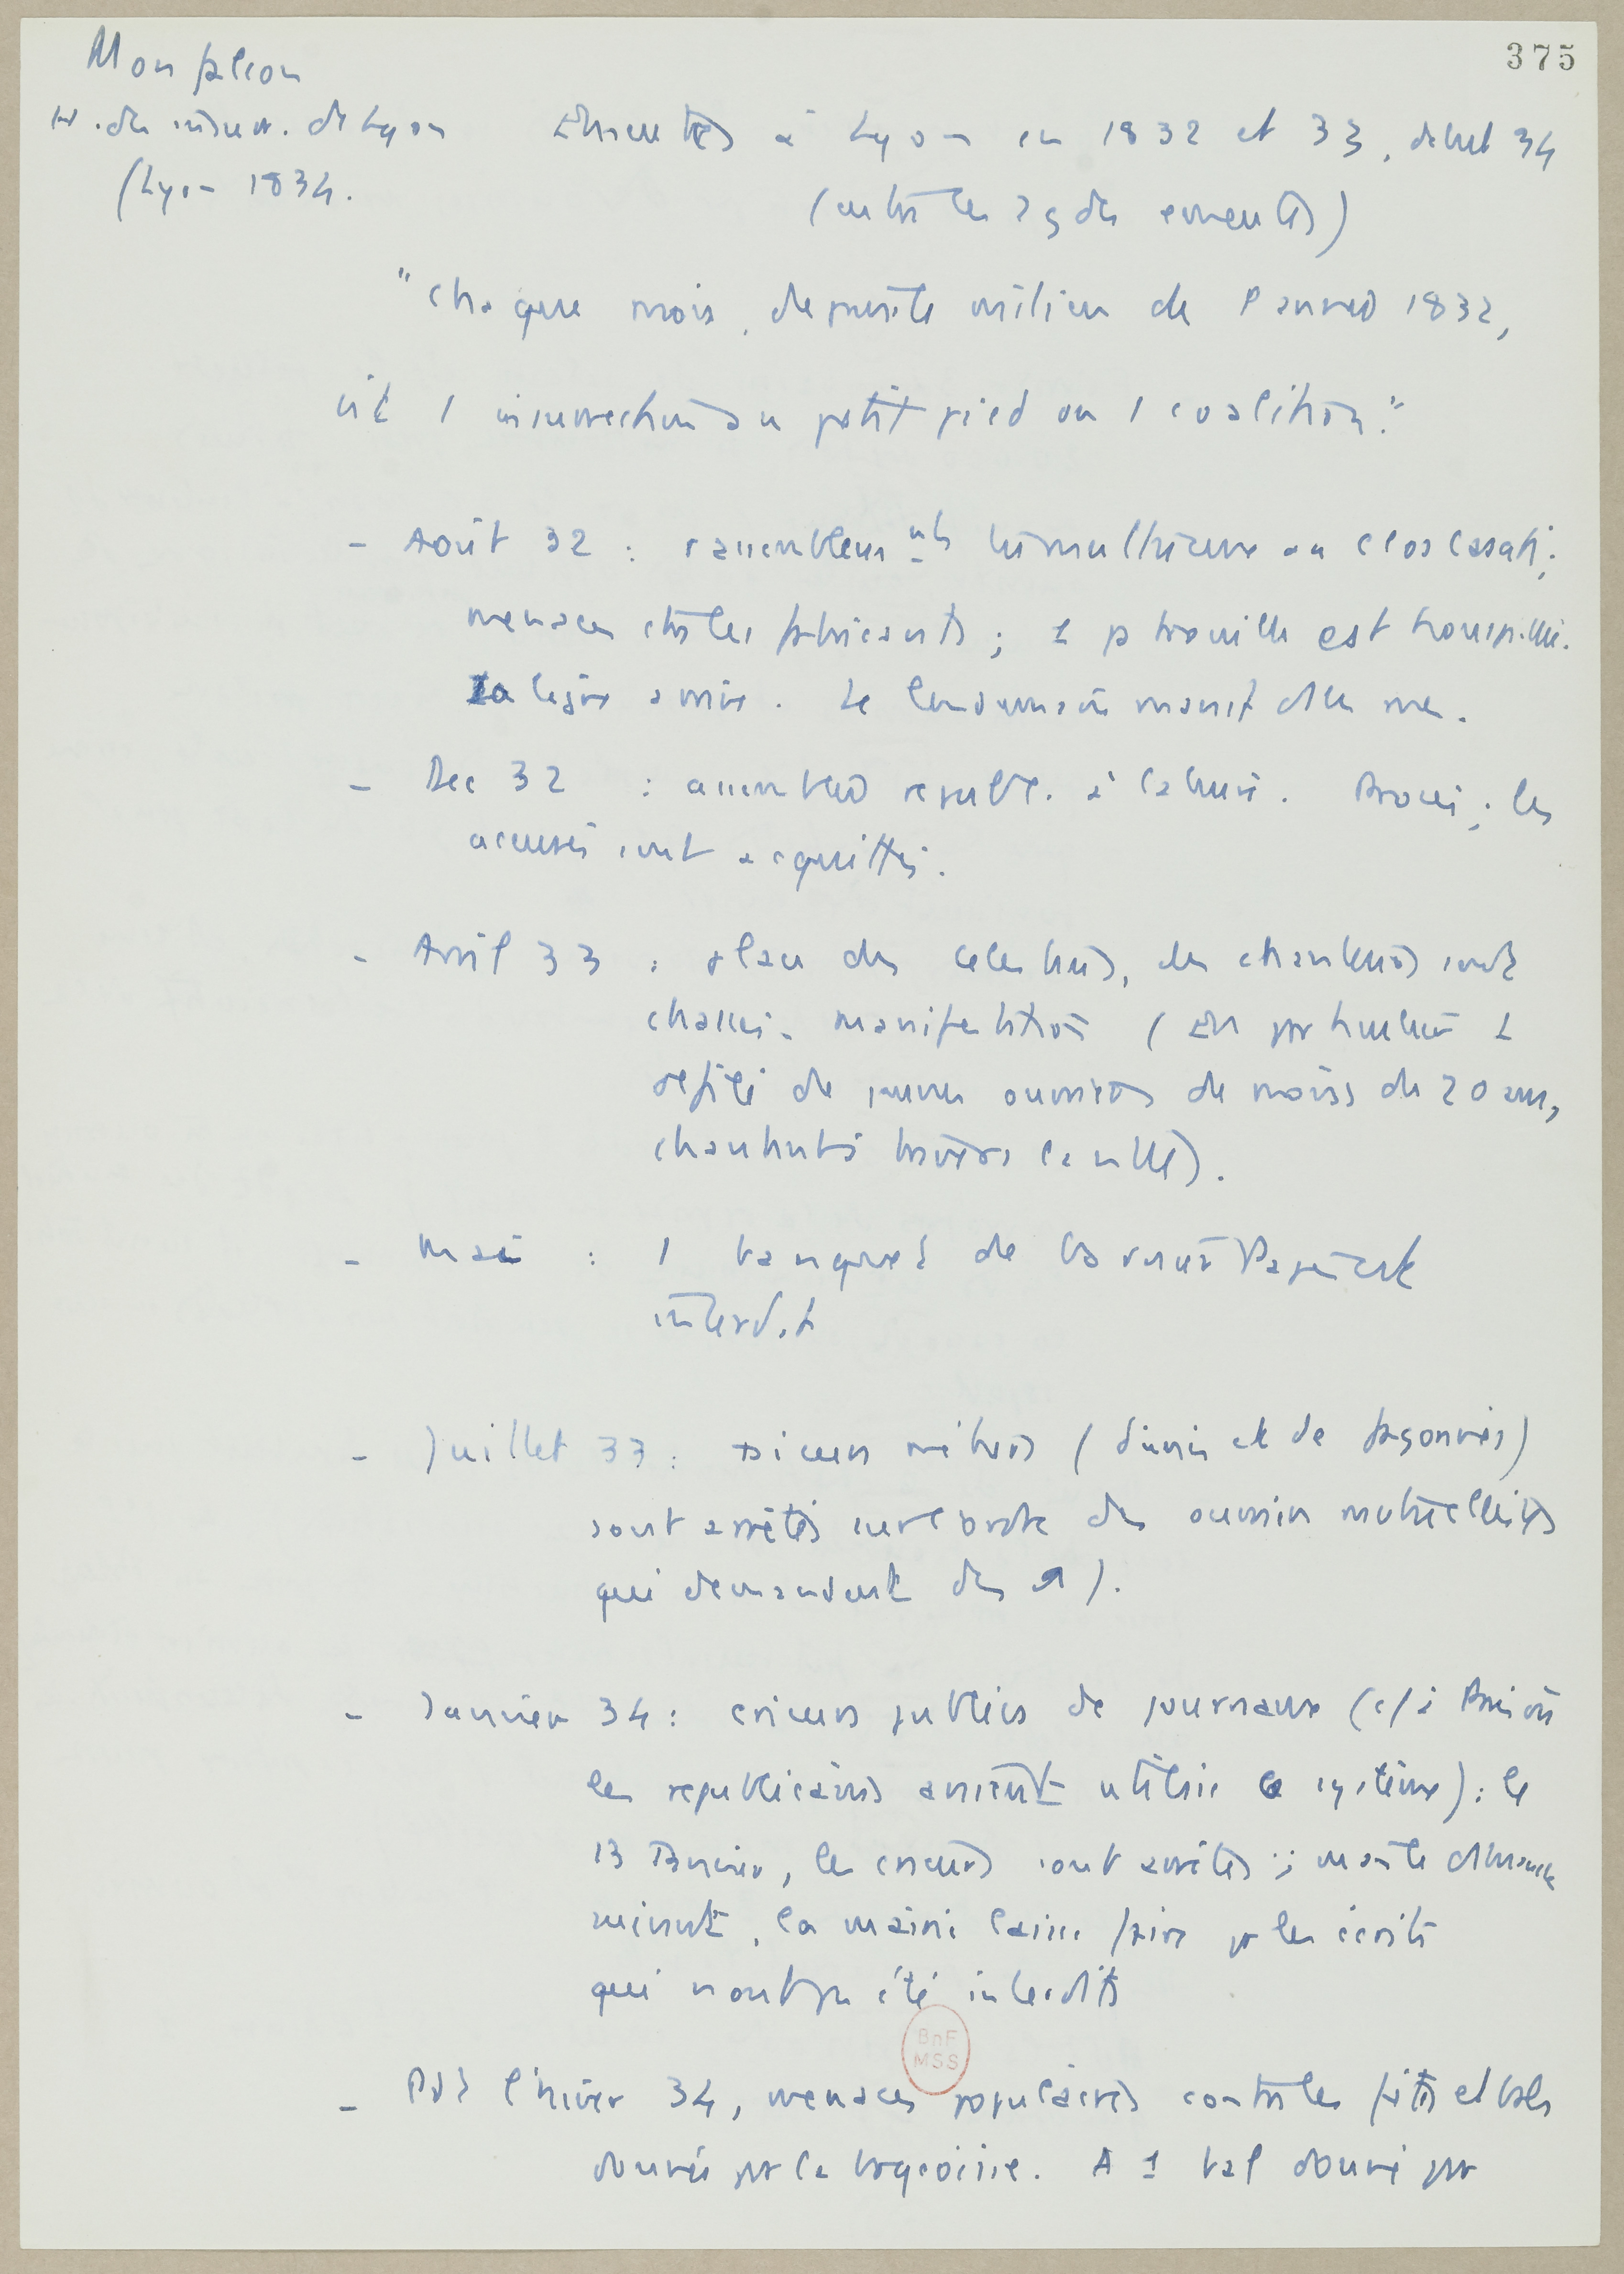 375
Monfalcon
H. des insurr. de Lyon
(Lyon 1834.
Emeutes à Lyon en 1832 et 33, debut 34
(entre les 2 gdes emeutes)
"chaque mois, depuis le milieu de l'année 1832,
vit 1 insurrection au petit pied ou 1 coalition."
- Août 32 : rassemblements tumultueux au clos Casati;
menaces ctre les fabricants ; 1 patrouille est houspillée.
La ligne arrive. Le lendemain manif
- Dec 32 : assemblée republ. à Caluire. Procès ; les
accusés sont acquittés.
- Avril 33 : place des Celestins, des chanteurs sont
chassés. manifestation (En particulier 1
défilé de jeunes ouvriers de moins de 20 ans,
à travers la ville).
- Mai : 1 banquet de
interdit
- Juillet 33 : métiers (d'unis et de façonnés)
sont arrêtés sur l'ordre des ouvriers mutuellistes
qui demandent des
- Janvier 34 : crieurs publics de journaux (c/à
les republicains avaient utilisé ce système) : le
13 Janvier, les crieurs sont arrêtés ;
la mairie laisse faire pr les écrits
qui n'ont pas été interdits
BnF
MSS
- Pdt l'hiver 34, menaces populaires contre les fêtes et bals
donnés par la bourgeoisie. A 1 bal donné par